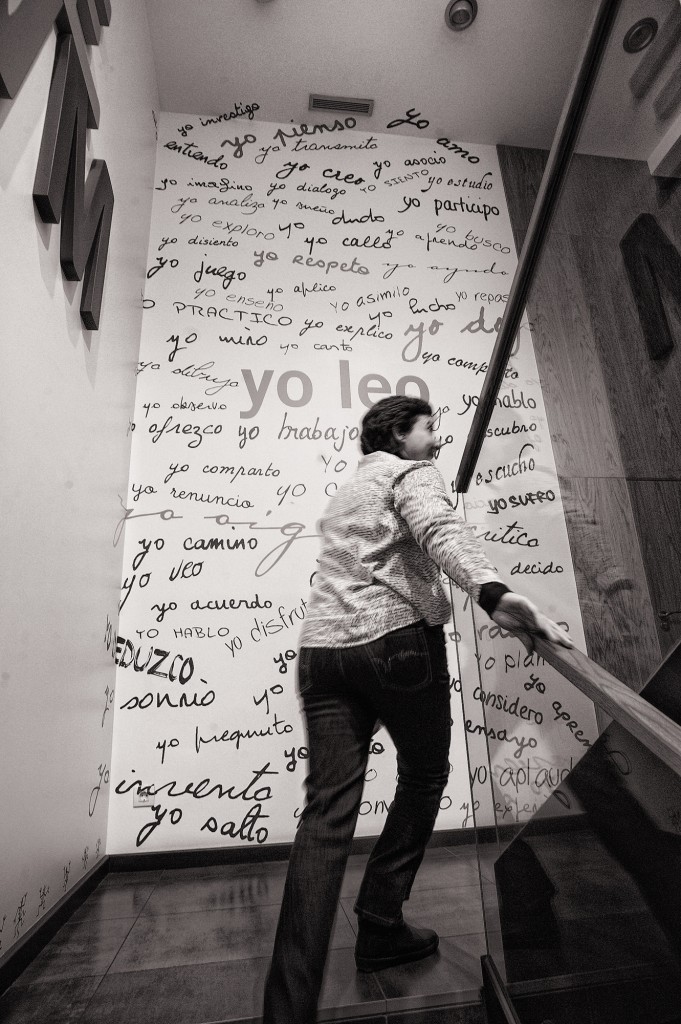 yo investigo
yo pienso
yo amo
entiendo
yo transmito
yo creo
yo asocio
yo imagino yo dialogo YO SIENTO yo estudio
yo analizo yo sueño
dudo
yo participo
yo exploro yo
yo busco
yo disiento yo callo yo aprendo
yo juego yo respeto yo ayudo
yo aplico
yo enseño yo asimilo yo lucho yo repas
O PRACTICO yo explico
yo miro yo canto
yo dibujo
yo leo
yo observo
yo hablo
ofrezco yo trabajo
scubro
yo comparto
escucho
yo renuncio
YO SUFRO
yo oig
crítica
yo camino
decido
yo veo
yo acuerdo
YO HABLO yo disfrut
EDUZCO
yo plan
sonrío yo
considero
yo apren
yo pregunto
ensayo
invento
yo aplaud
yo salto